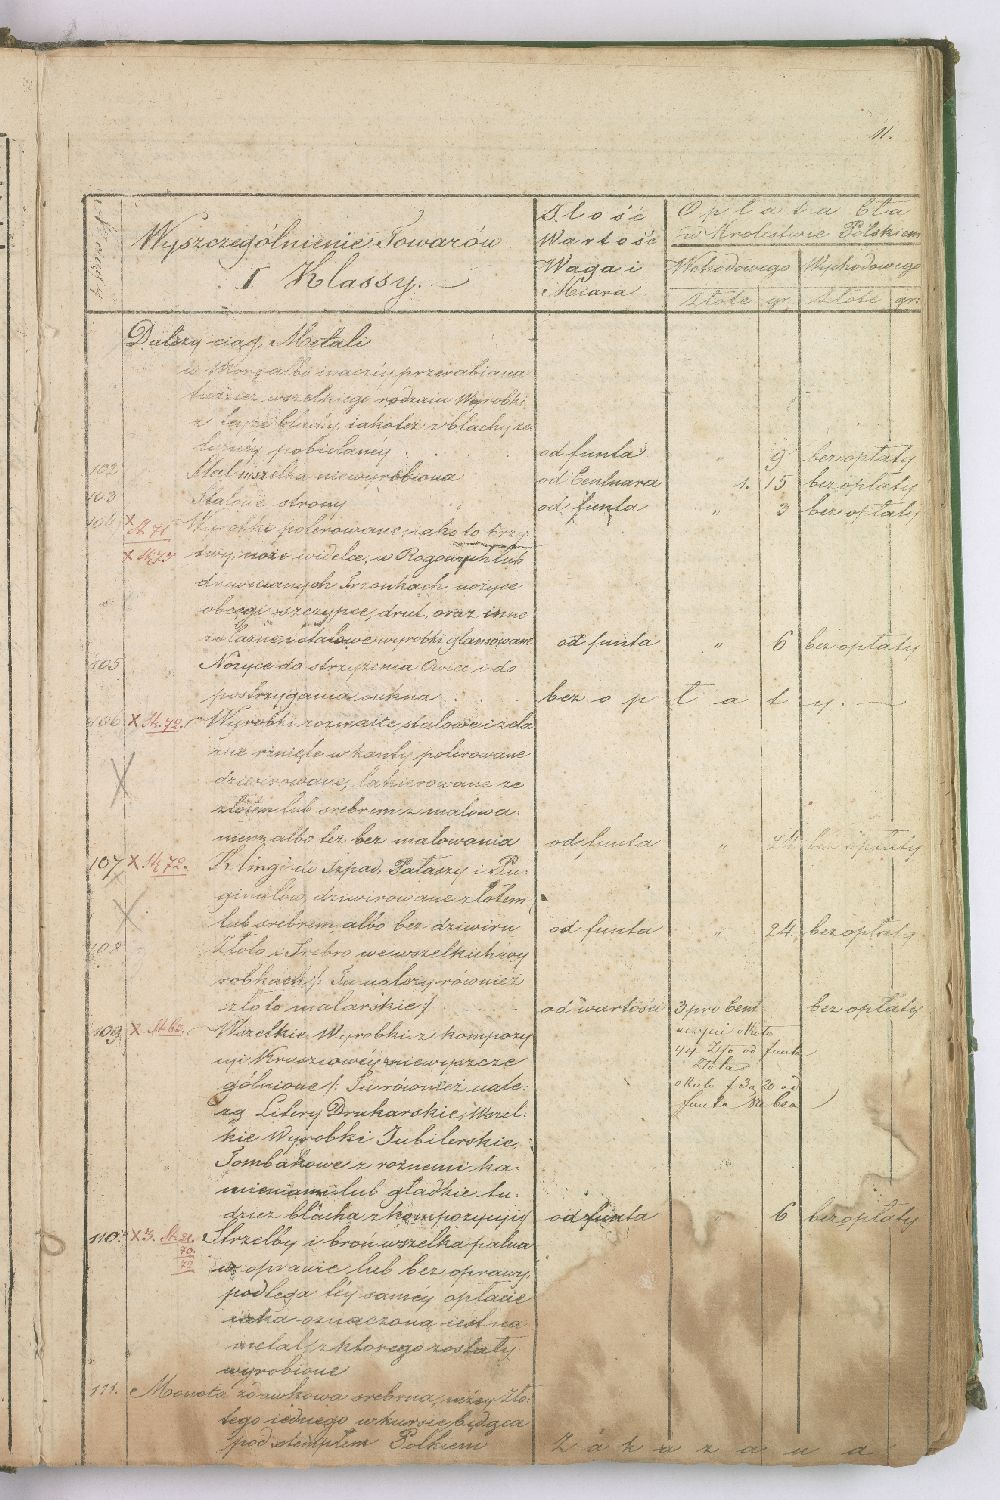 11.
Wyszczególnienie Towarów
I Klassy.
Ilość
Wartość
Waga i
Miara
Opłata Cła
w Królestwie Polskiem
Wchodowego Wychodowego
złote gr. złote gr.
Dalszy ciąg, Metali
albo inaczéy przerabiana
wszelkiego rodzaiu Wyrobki
z blachy, iakoteż z blachy że
pobielanéy od funta " 9 bez opłaty
102. Stal wszelka niewyrobiona od Centnara 1. 15 bez opłaty
103 Stalowe strony od funta " 3 bez opłaty
104 X Wyrobki polerowane, iako to brzy
X twy, noże widelce, w Rogowych lub
drewnianych Trzonkach nożyce
obcęgi szczypce, drut, oraz inne
żelazne i stalowe wyrobki glansowane od funta " 6 bez opłaty
105 Nożyce do strzyżenia Owiec i do
postrzygania sukna bez opłaty.
106 X 72. Wyrobki rozmaite, stalowe i żela
zne rżnięte w kanty polerowane
lakierowane ze
złotem lub srebrem z malowa
niem albo też bez malowania od funta " 24 bez opłaty
107 X 72. Klingi do Szpad, Pałaszy i Pu-
ginałów, dziwirowane złotem,
lub srebrem, albo bez dziwiru od funta " 24. bez opłaty
108 Złoto i Srebro we wszelkich wy
robkach /: Tu należy również
złoto malarskie :/ od wartości 3 pro Cent bez opłaty
czyni około
44 Złp od funta
złota
około f 3 g 20 od
funta srebra
109 X Wszelkie Wyrobki z kompozy
cyi Kruszcowéy niewyszcze
gólnione /: Tu również nale-
żą Litery Drukarskie, Wszel-
kie Wyrobki Jubilerskie,
Tombakowe z różnemi ka-
mieniami lub gładkie tu-
dzież blacha z kompozycyi od funta 6 bez opłaty
110. X 3. Strzelby i broń wszelka palna
70.
72 w oprawie, lub bez oprawy,
podlega téy saméy opłacie
iaka oznaczona iest na
metal, z którego zostały
wyrobione
111. Moneta zdawkowa srebrna, niżéy Zło-
tego iednego w kursie będąca
pod stemplem Polskiem Zakazana